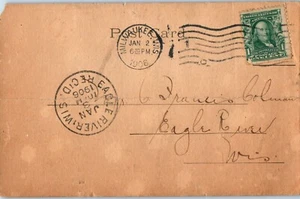 Post Card
MILWAUKEE, WIS.
JAN 2
6 30 PM
1906
EAGLE RIVER, WIS.
JAN
3
10 AM
1906
REC'D.
C Francis Colman
Eagle River
Wis.